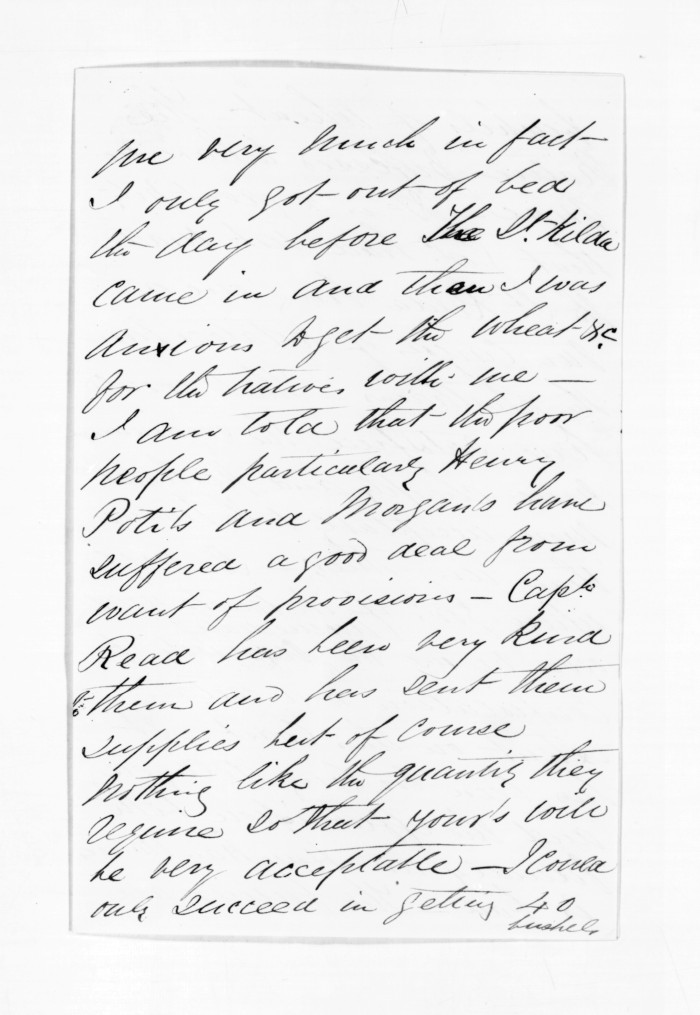 me very much in fact
I only got out of bed
the day before The St. Kilda
came in and then I was
anxious to get the wheat &c.
for the natives with me —
I am told that the poor
people particularly Henry
Potiki's and Morgan's have
suffered a good deal from
want of provisions — Capt.
Read has been very kind
to them and has sent them
supplies but of course
nothing like the quantity they
require so that your's will
be very acceptable — I could
only succeed in getting 40
bushels